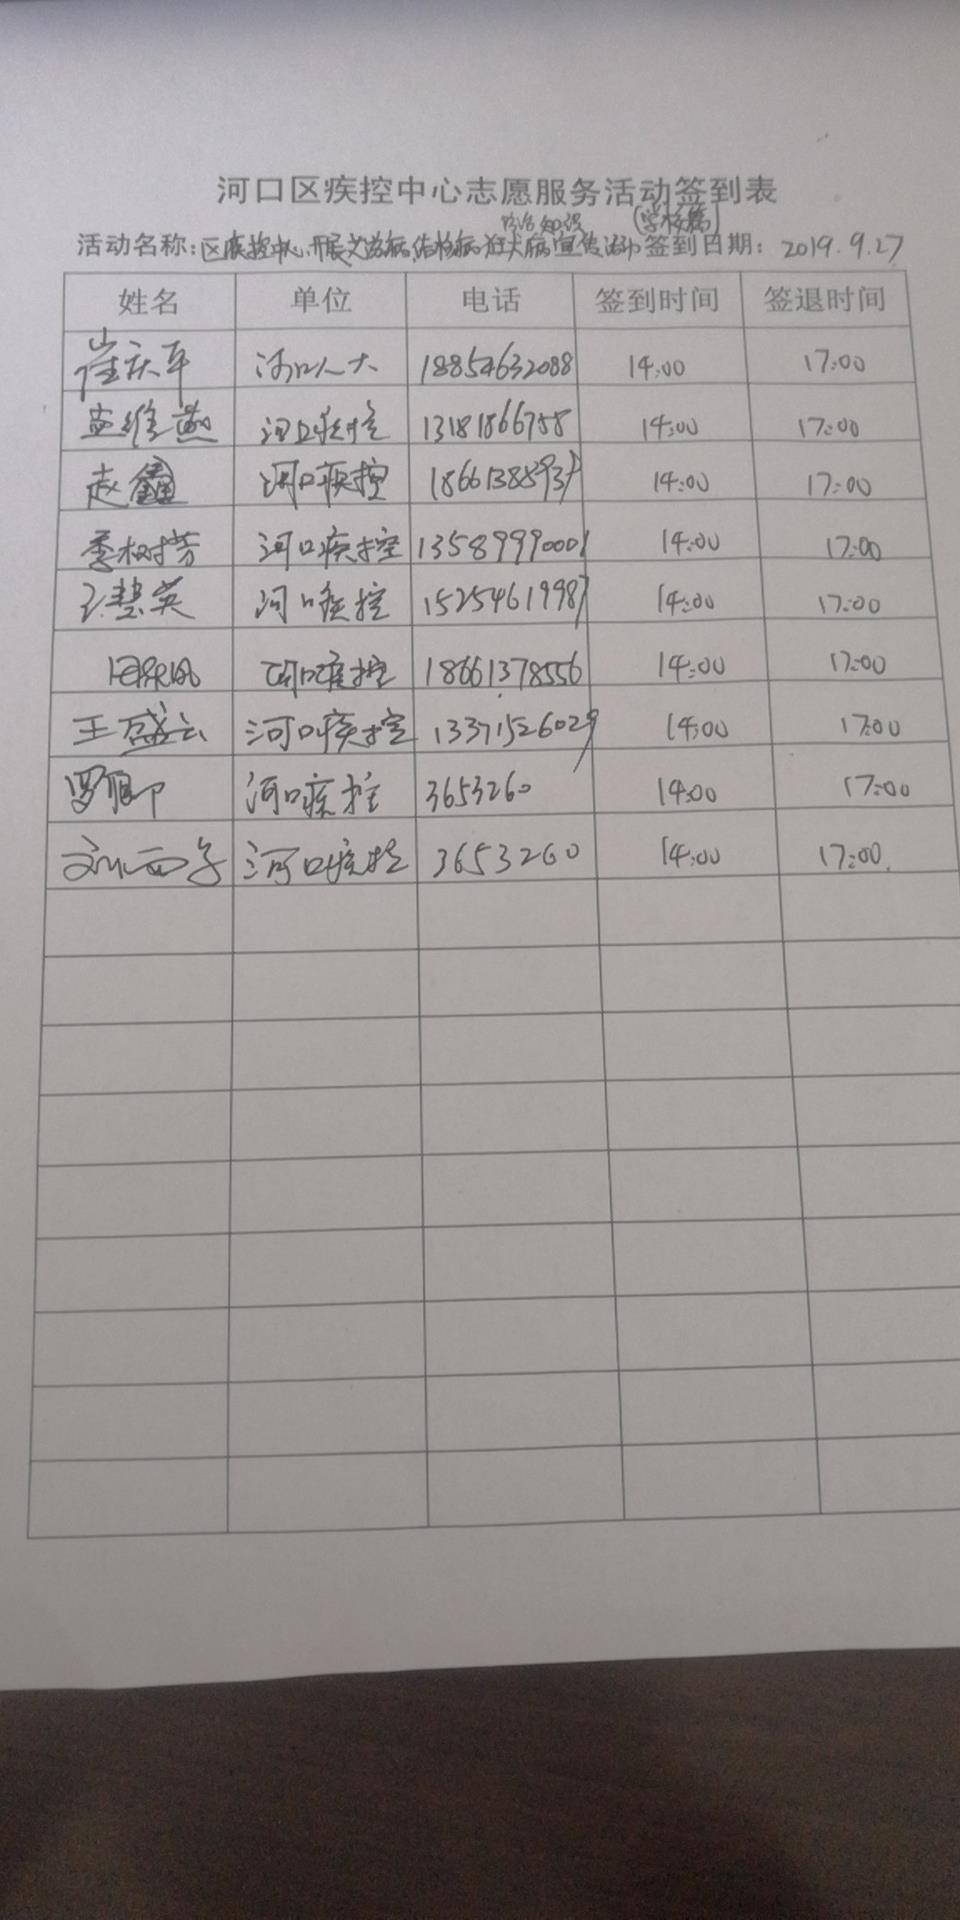 河口区疾控中心志愿服务活动签到表
防治知识 (学校篇)
活动名称:区疾控中心开展艾滋病、结核病、狂犬病宣传活动 签到日期: 2019.9.27
姓名 单位 电话 签到时间 签退时间
崔庆军 河口人大 18854632088 14:00 17:00
孟维燕 河口疾控 13181866758 14:00 17:00
赵鑫 河口疾控 18661388937 14:00 17:00
季树芳 河口疾控 13589990001 14:00 17:00
王慧英 河口疾控 15254619987 14:00 17:00
河口疾控 18661378556 14:00 17:00
王盛云 河口疾控 13371526029 14:00 17:00
河口疾控 3653260 14:00 17:00
刘西子 河口疾控 3653260 14:00 17:00